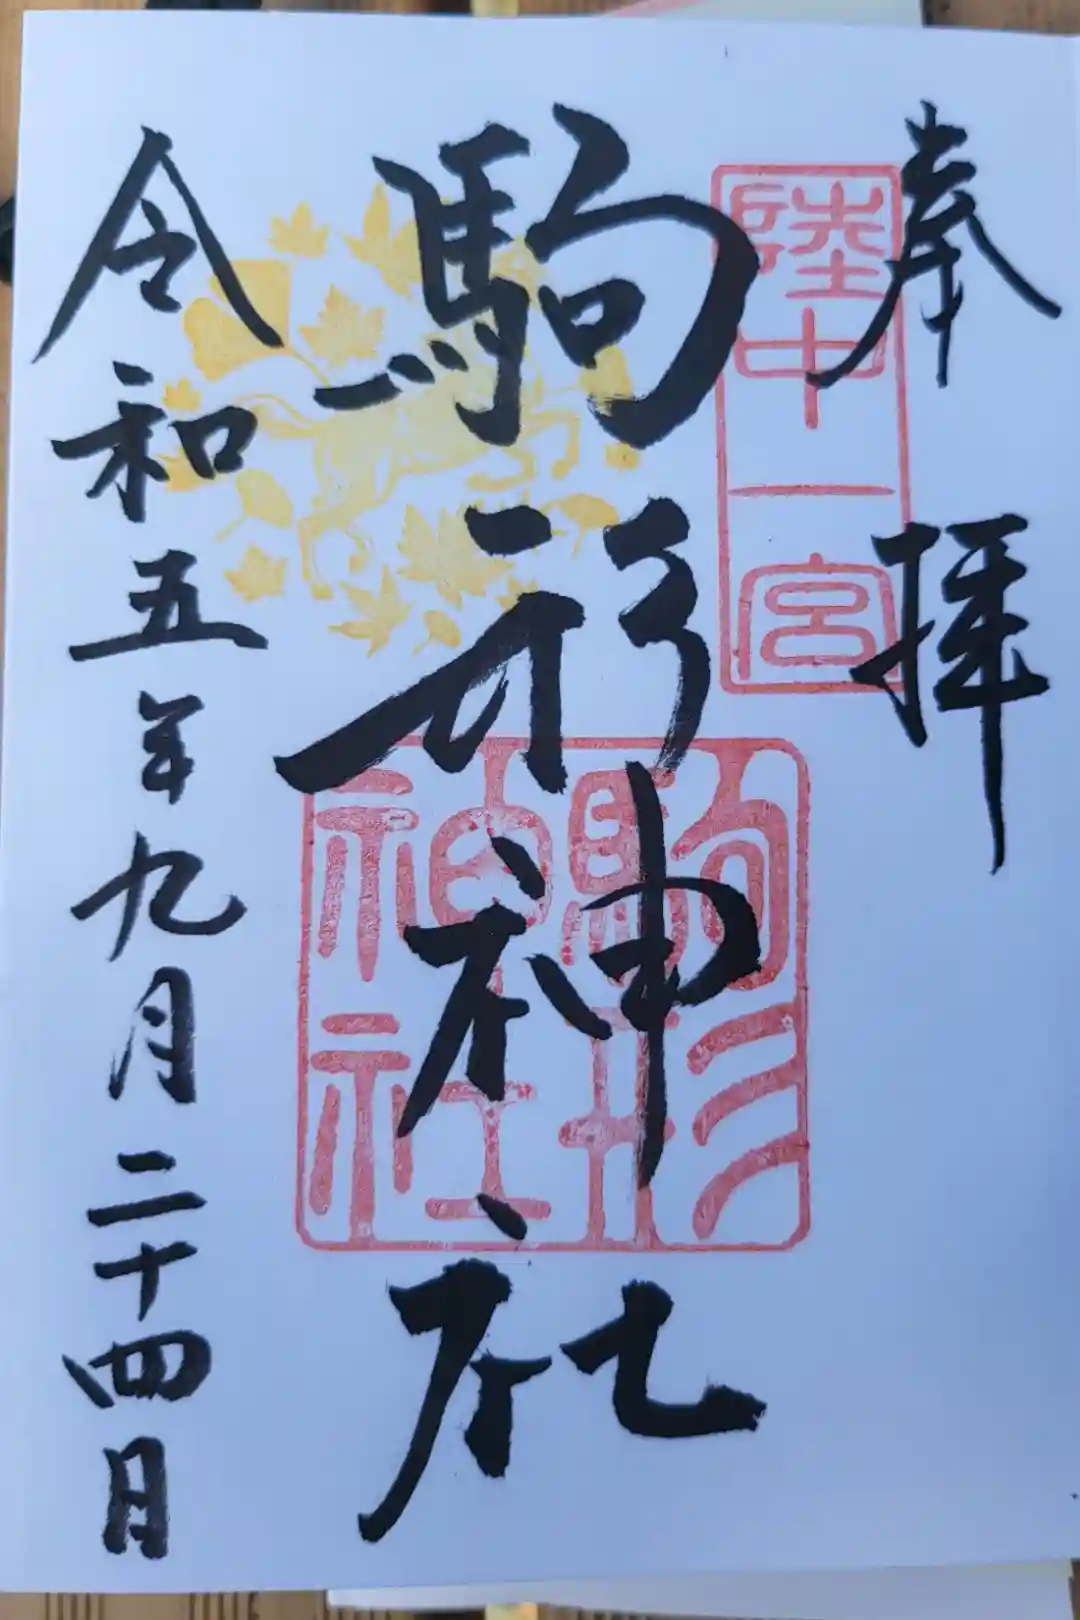 奉拝
陸中一宮
駒形神社
駒形神社
令和五年九月二十四日